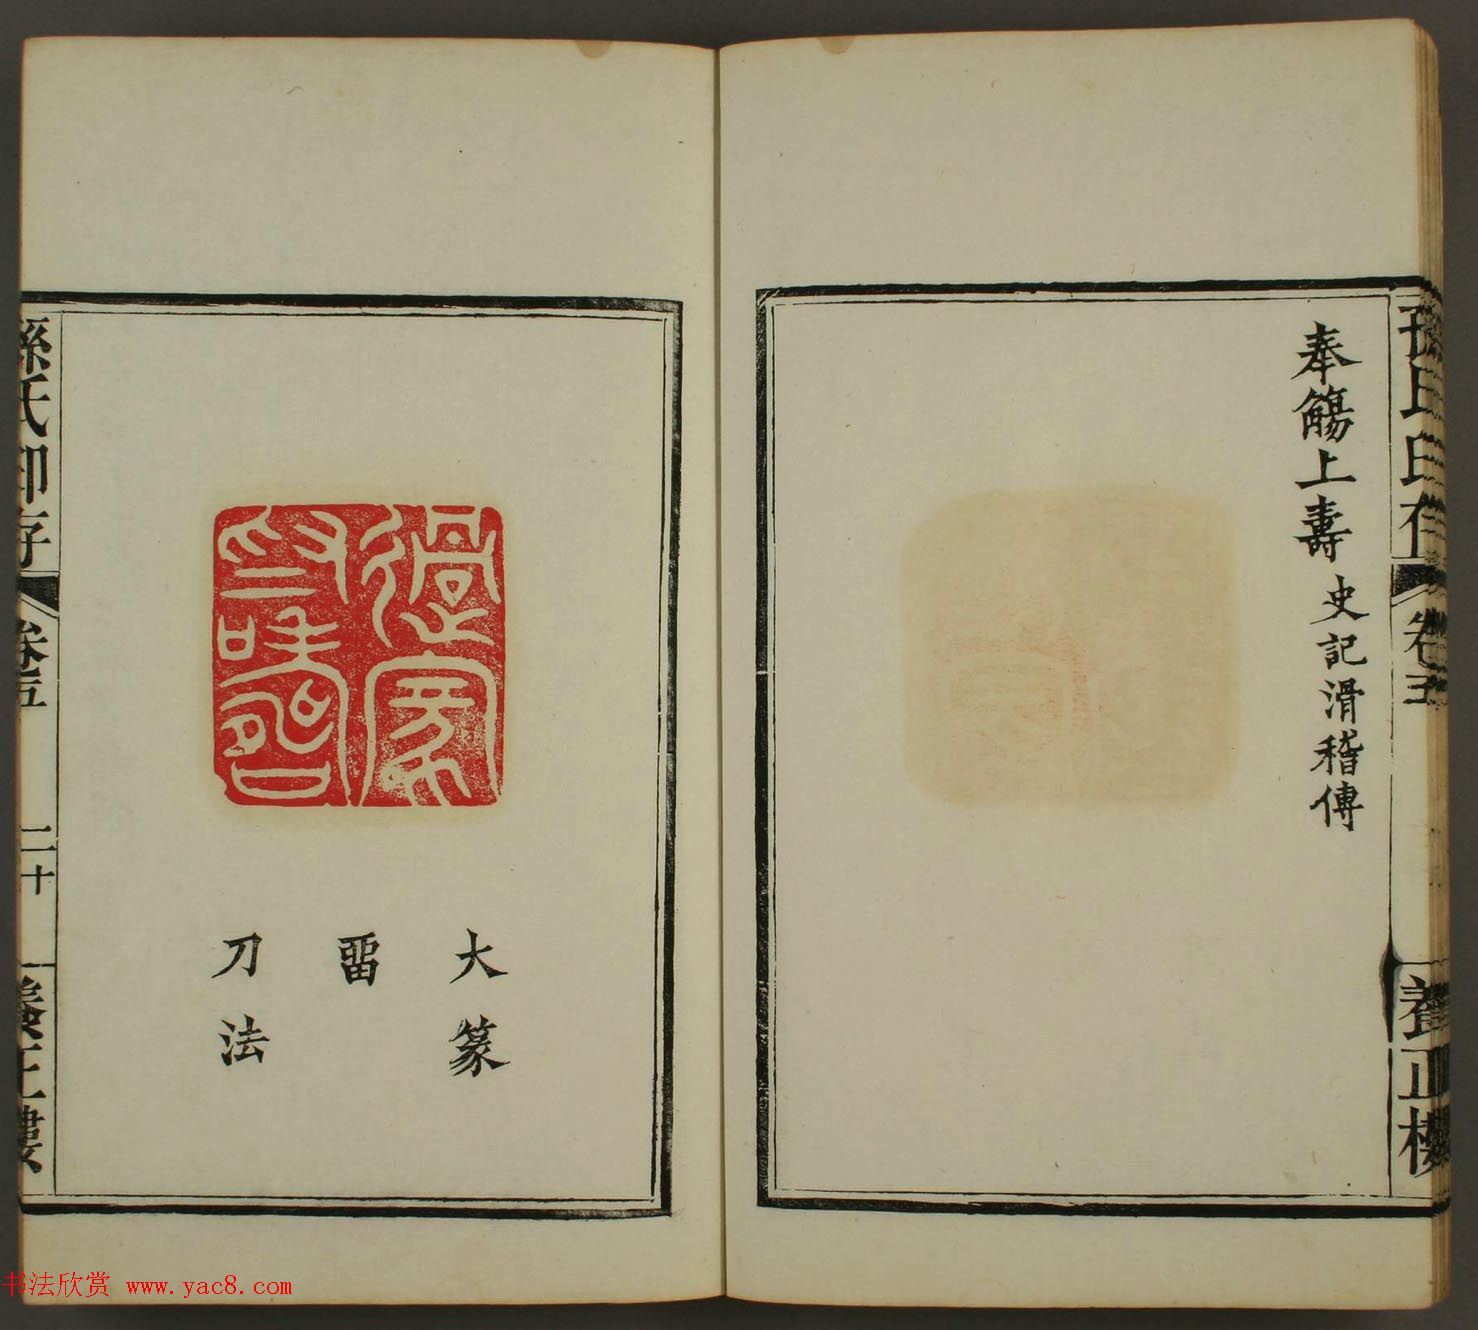 孫氏印存
卷五
養正樓
奉觴上壽 史記滑稽傳
大篆
畱
刀法
孫氏印存
卷五
二十
養正樓
书法欣赏 www.yac8.com